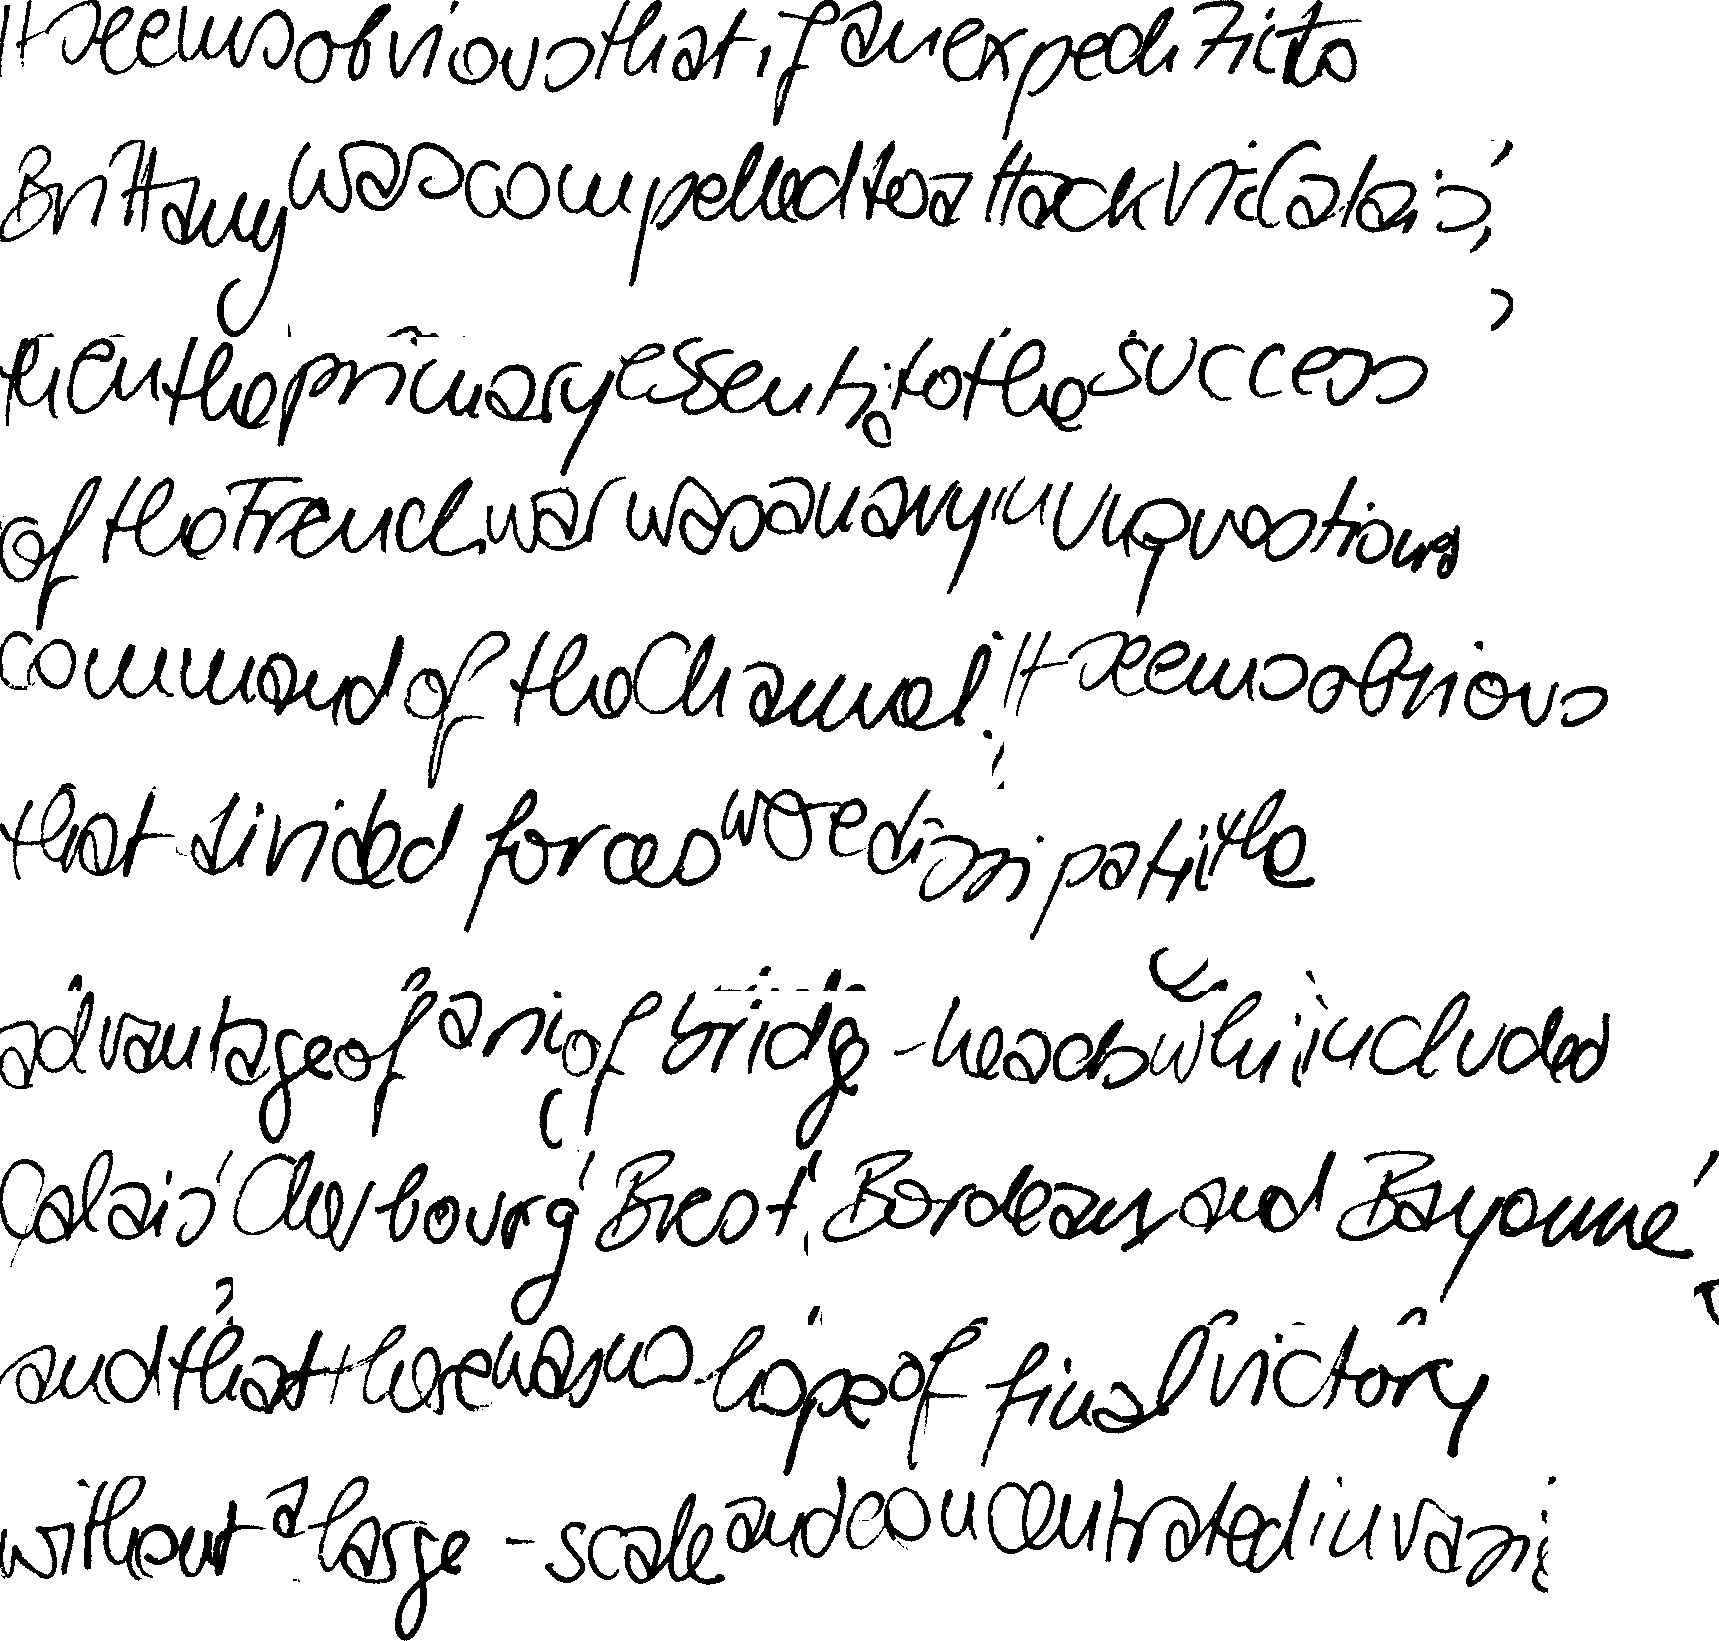 It seems obvious that if an expediti to
Brittany was compelled to attack vi Calais,
then the primary essenti to the success
of the French war was a navy in unquestions
command of the Channel. It seems obvious
that divided forces were dissipati the
advantage of a ri of bridge-heads whi included
Calais, Cherbourg, Brest, Bordeaux and Bayonne,
and that there was no hope of final victory
without a large-scale and concentrated invasi